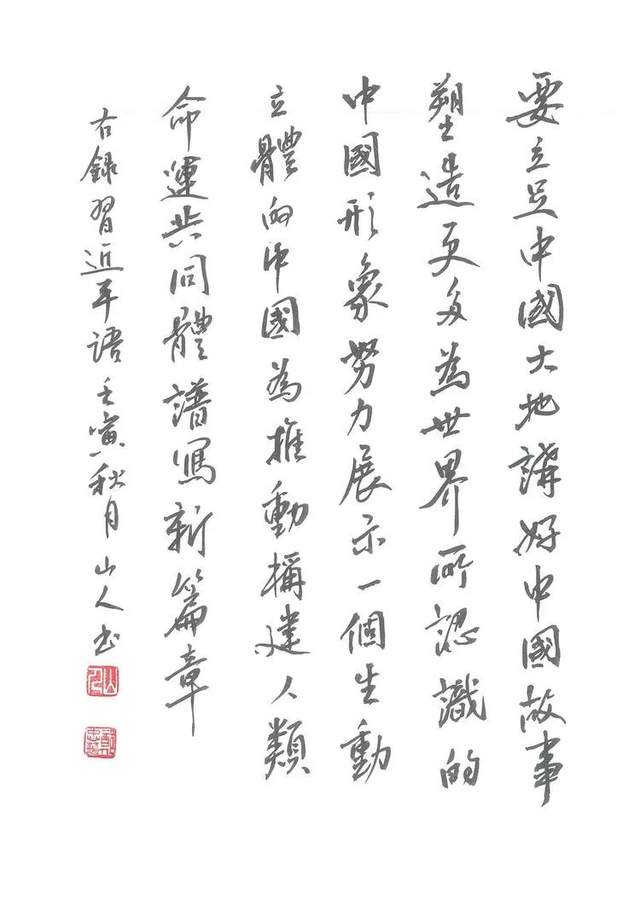 要立足中國大地講好中國故事
塑造更多為世界所認識的
中國形象努力展示一個生動
立體的中國為推動構建人類
命運共同體譜寫新篇章
右錄習近平語壬寅秋月山人書